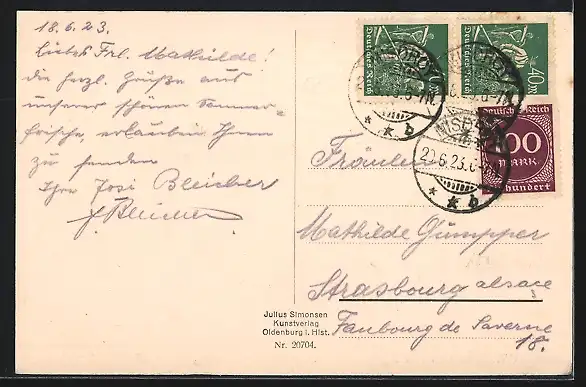 18.6.23.
Liebes Frl. Mathilde!
die herzl. Grüße aus
unserer schönen Sommer-
frische erlauben Ihnen
zu senden
Ihre Josi Bleicher
Deutsches Reich
Deutsches Reich
40 M.
MISDROY
20.6.23. 6-7 N.
* * b
Deutsches Reich
100
MARK
hundert
Fräulein
Mathilde Gumpper
Strasbourg alsace
Faubourg de Saverne
18.
Julius Simonsen
Kunstverlag
Oldenburg i. Hlst.
Nr. 20704.